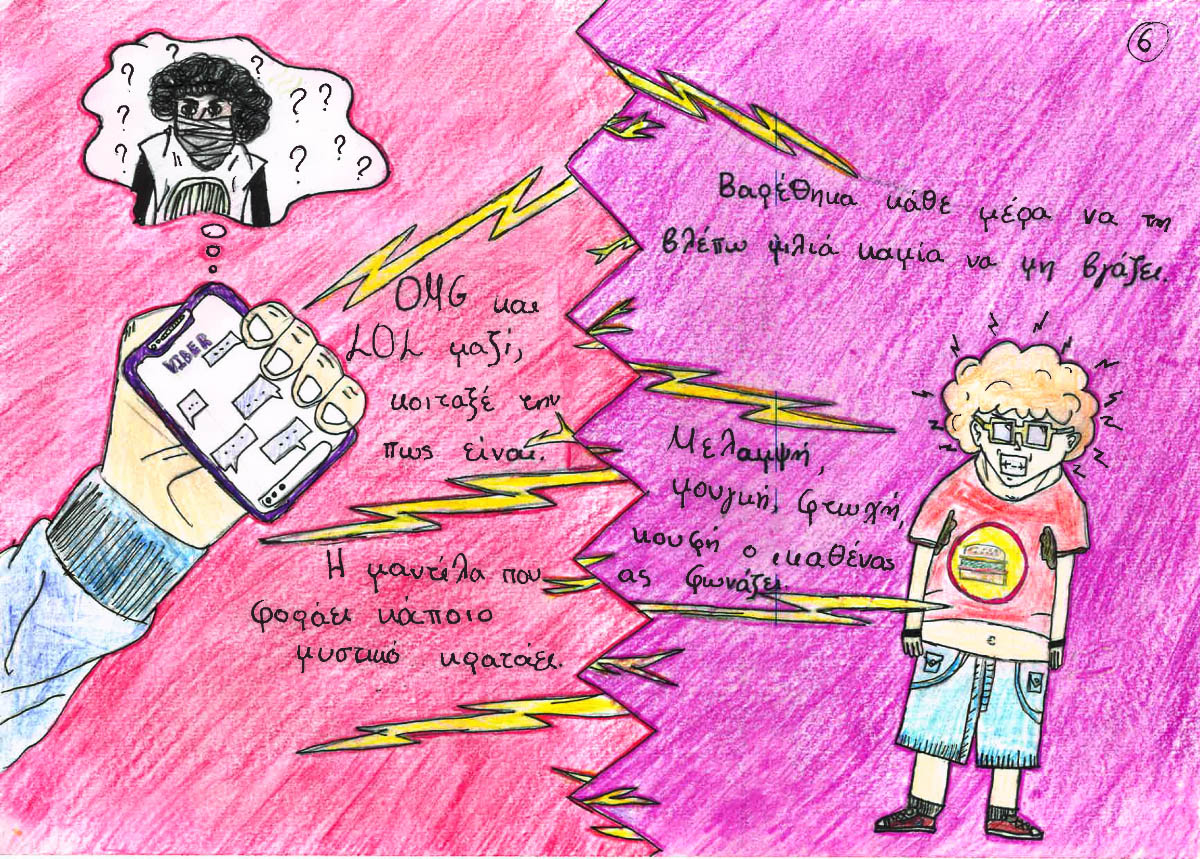 6
VIBER
OMG και
LOL μαζί,
κοιταξέ την
πως είναι.
Η μαντίλα που
φοράει κάποιο
μυστικό κρατάει.
Βαρέθηκα κάθε μέρα να τη
βλέπω μιλιά καμία να μη βγάζει.
Μελαμψή,
μουγκή, φτωχή,
κουφή ο καθένας
ας φωνάζει.